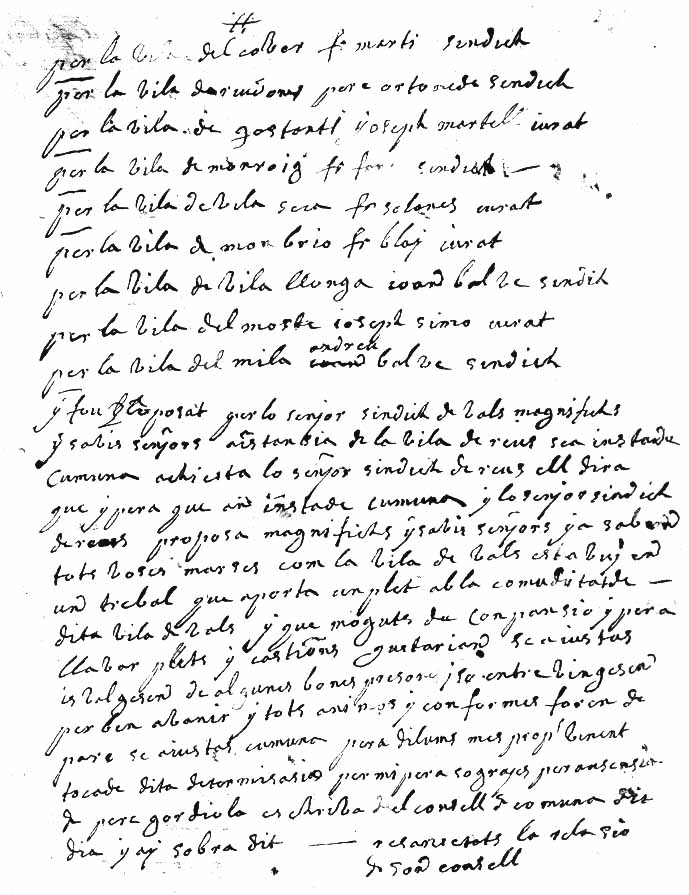 per la vila del cobor fr marti sindich
per la vila de riudoms pere ortoneda sindich
per la vila de gostanti joseph martell iurat
per la vila de monroig fr sindich
per la vila de vila seca fr selones iurat
per la vila de monbrio fr bloy iurat
per la vila de vila llonga ioan balve sindich
per la vila del moste ioseph simo iurat
per la vila del mila andreu balve sindich
y fou proposat per lo senjor sindich de vals magnifichs
y savis senjors a instansia de la vila de reus sea instande
cumuna achiesta lo senjor sindich de reus ell dira
que y pera que an instade cumuna y lo senjor sindich
de reus proposa magnifichs y savis senjors ya saben
tots voses marses com la vila de vals esta vuy en
un trebal que aporta un plet ab la comuditat de
dita vila de vals y que moguts de conpansio y pera
llavar plets y costions gustarian se aiustas
is valgesen de algunes bones presones y so entrevingesen
per ben avanir y tots anims y conformes foren de
pare se aiustas cumuna pera dilluns mes prop vinent
tocade dita determinasio per mi pera sograjes per ausensia
de pere gordiola eschriba del consell de comuna dit
dia y ay sobra dit resansetots la relasio
de son consell